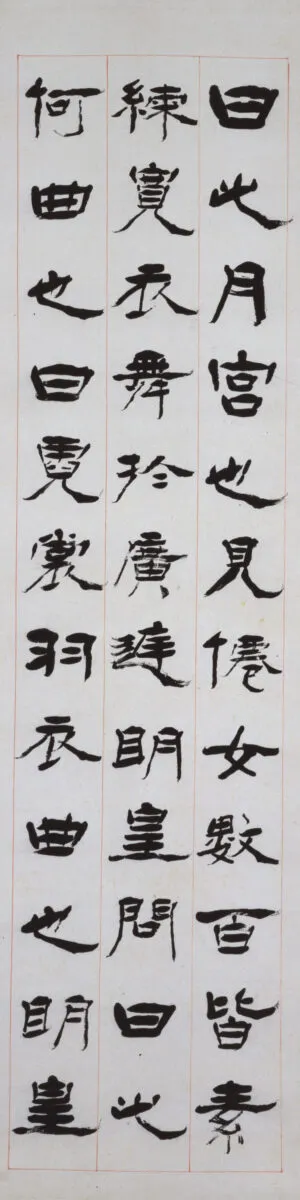 曰此月宮也見僊女數百皆素
練寬衣舞於廣庭眀皇問曰此
何曲也曰霓裳羽衣曲也眀皇